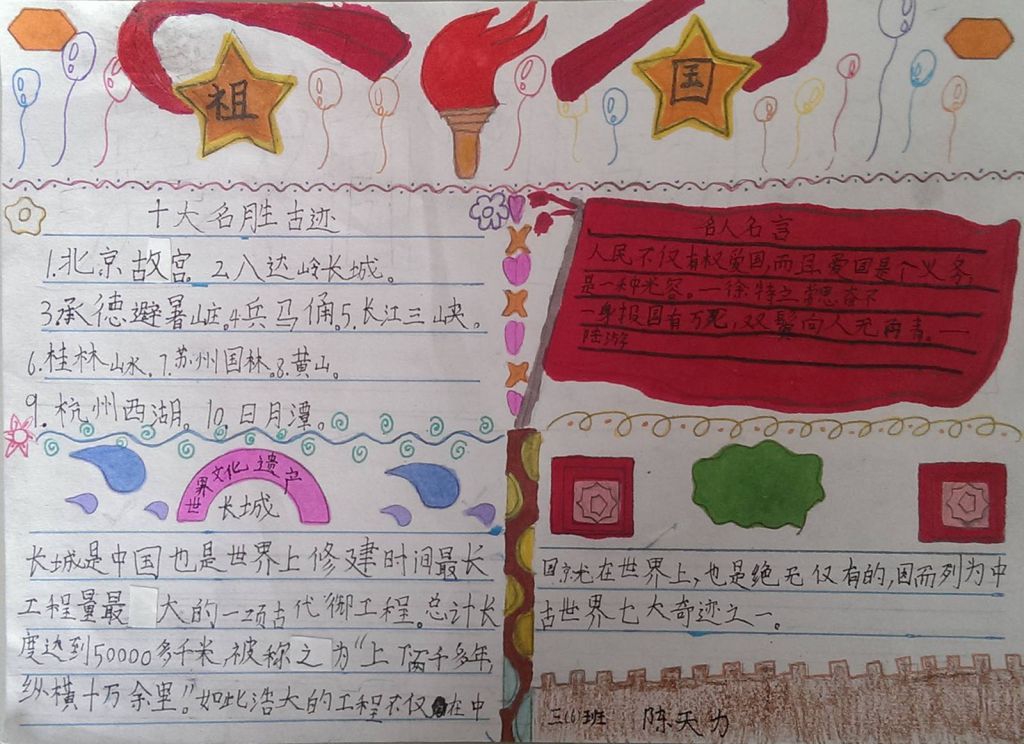 祖
国
十大名胜古迹
1.北京故宫 2.八达岭长城。
3.承德避暑山庄。4.兵马俑。5.长江三峡。
6.桂林山水。7.苏州国林。8.黄山。
9.杭州西湖。10.日月潭。
名人名言
人民不仅有权爱国,而且爱国是个义务,
是一种光容。—徐特立
一身报国有万死,双鬓向人无再青。—
陆游
世界文化遗产
长城
长城是中国也是世界上修建时间最长
工程量最大的一项古代御工程。总计长
度达到50000多千米,被称之为“上下两千多年,
纵横十万余里。”如此浩大的工程不仅在中
国就在世界上,也是绝无仅有的,因而列为中
古世界七大奇迹之一。
三(6)班 陈天力